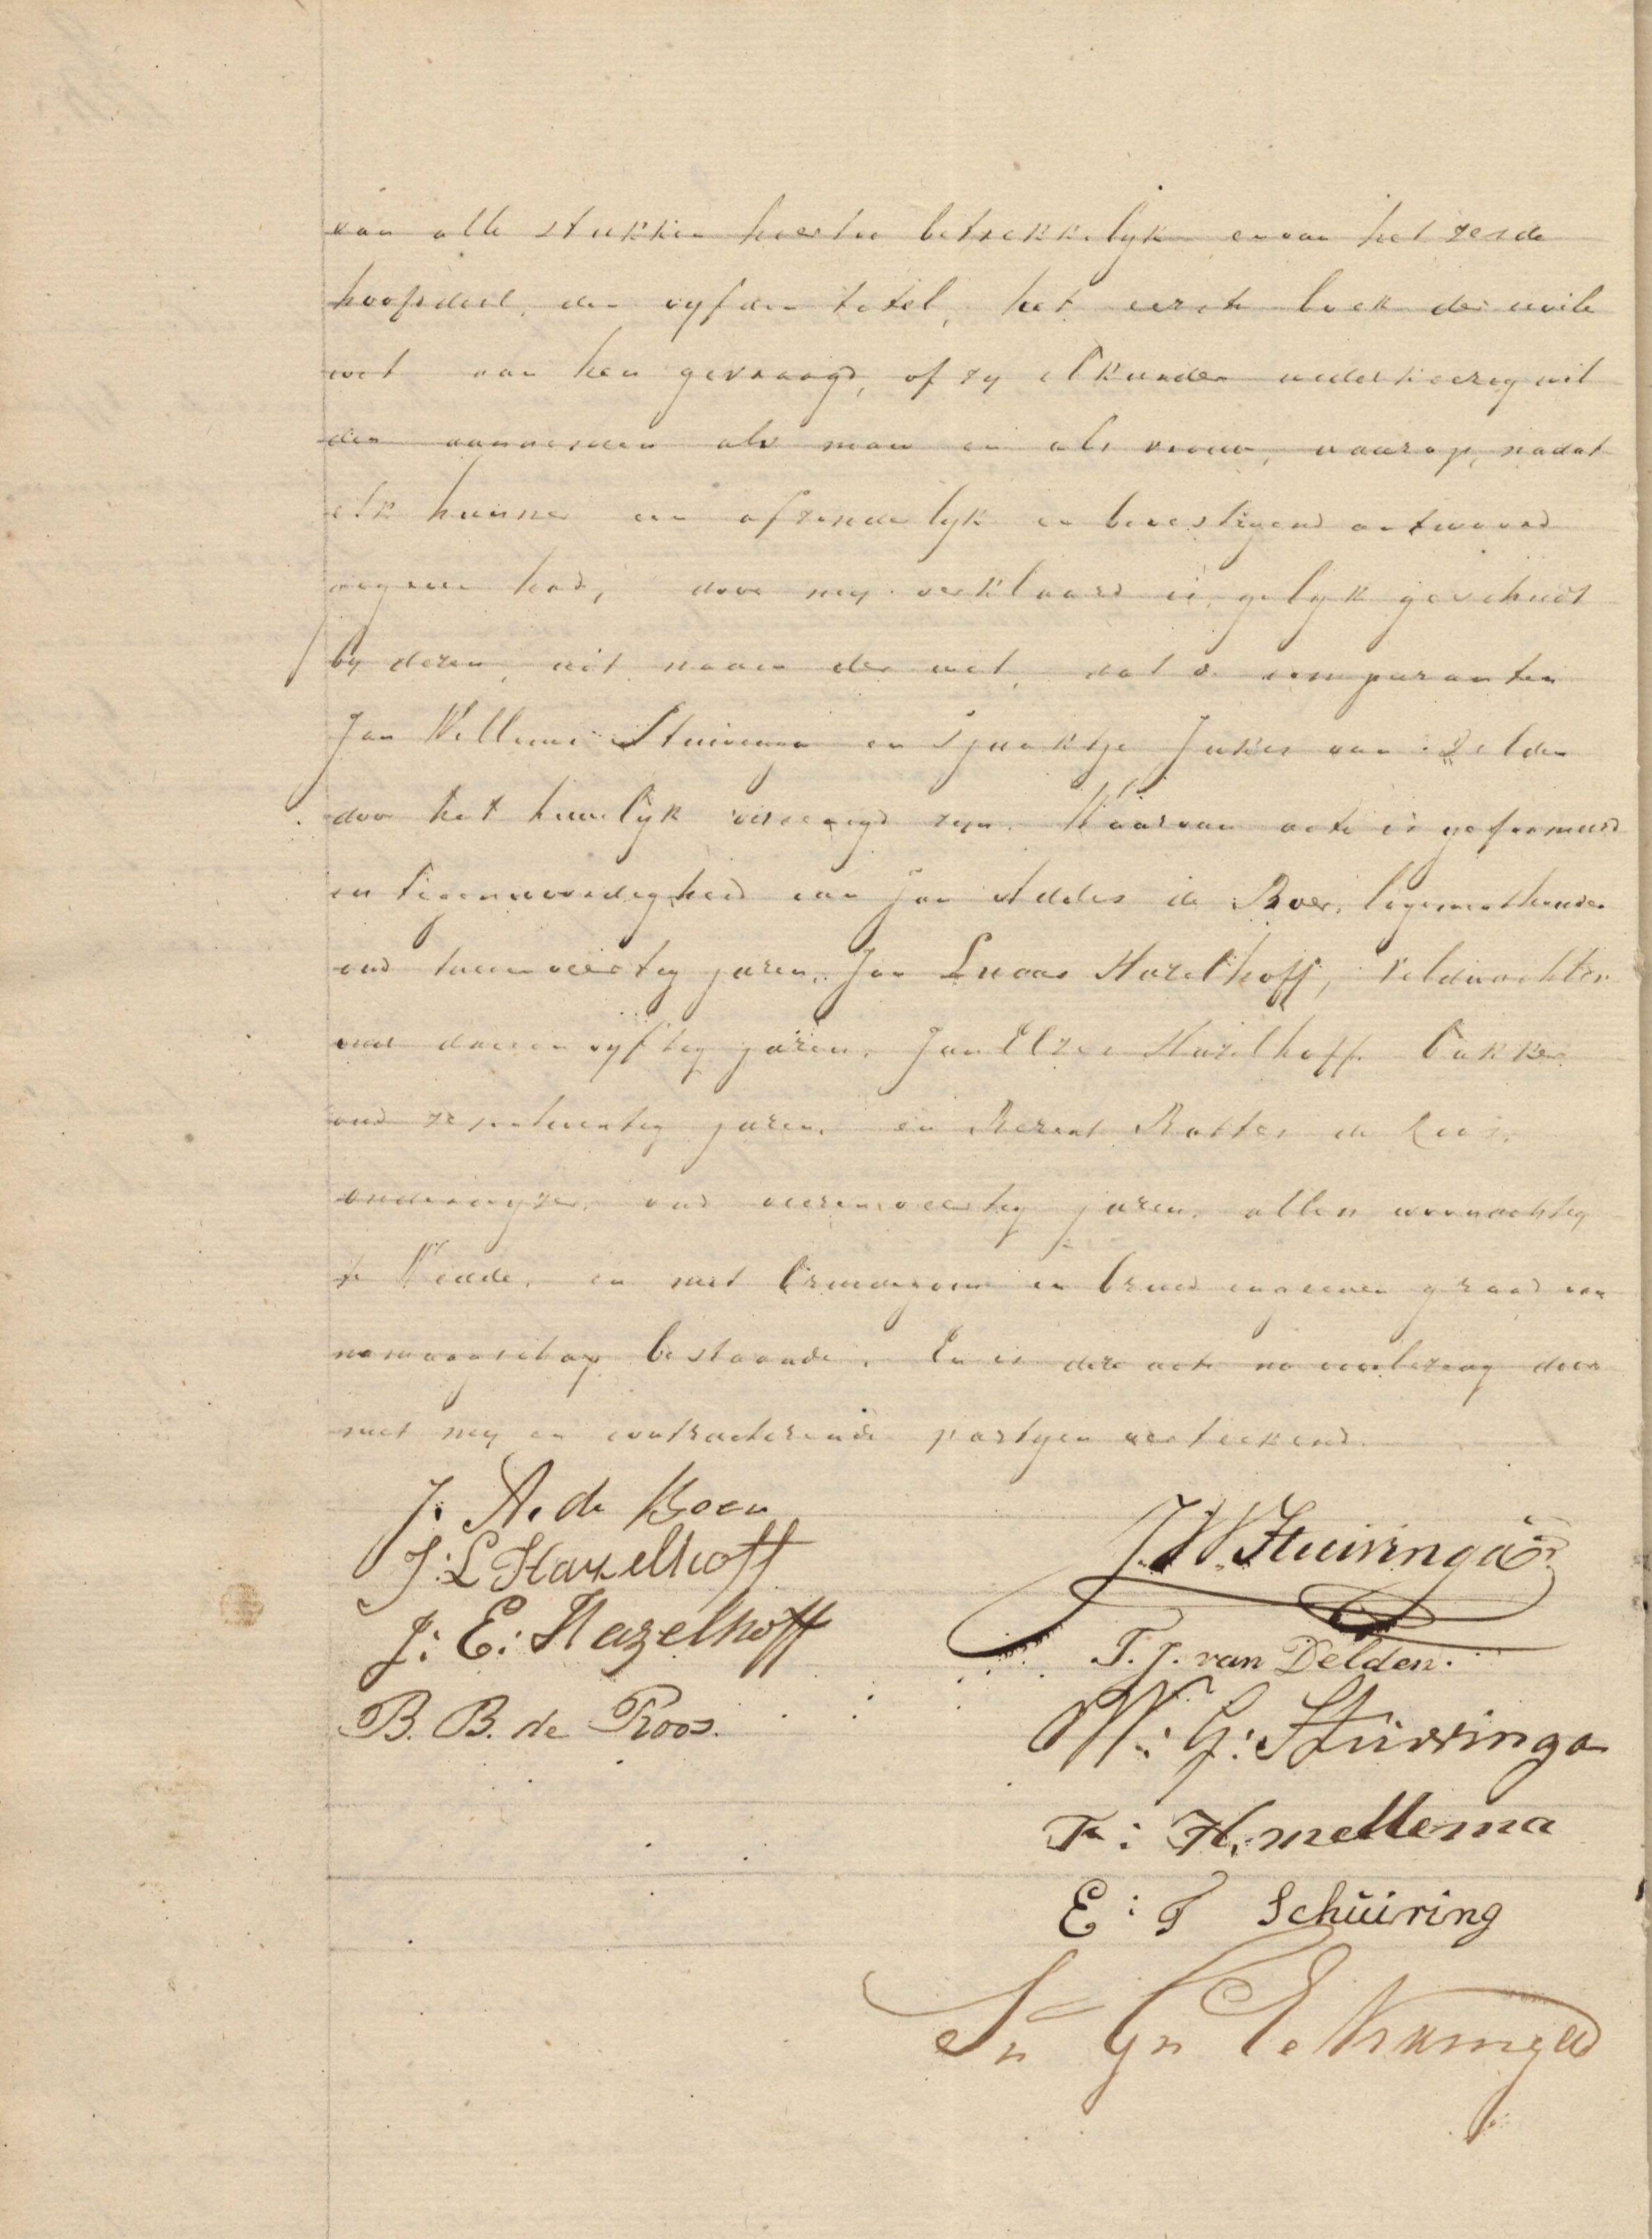 van alle stukken hiertoe betrekkelyk en van het zesde
hoofddeel, den vyfden titel, het eerste boek der civile
wet aan hen gevraagd, of zy elkander wederkeerig wil
den aannemen als man en als vrouw, waarop, nadat
elk hunner een afzonderlyk en bevestigend antwoord
gegeven had, door my verklaard is, gelyk geschiedt
by dezen, uit naam der wet, dat de comparanten
Jan Willems Stuivinga en Tjaaktje Jakes van Delden
door het huwelyk vereenigd zyn. Waarvan acte is geformeerd
in tegenwoordigheid van Jan Addes de Boer, logementhouder
oud tweenveertig jaren, Jan Lucas Hazelhoff, veldwachter
oud drieenvyftig jaren, Jan Elzes Hazelhoff bakker
oud zesentwintig jaren, en Berend Bottes de Roos,
onderwyzer, oud vierenveertig jaren, allen woonachtig
te Wedde, en met bruidegom en bruid in geenen graad van
vermaagschap bestaande. En is deze acte na voorlezing door
met my en contracterende partyen verteekend.
J. A. de Boer
J: L Hazelhoff
J: E: Hazelhoff
B. B. de Roos.
J. W. Stuivinga
T. J. van Delden.
W: G: Stuivinga
F: H. mellema
E: T Schuiring